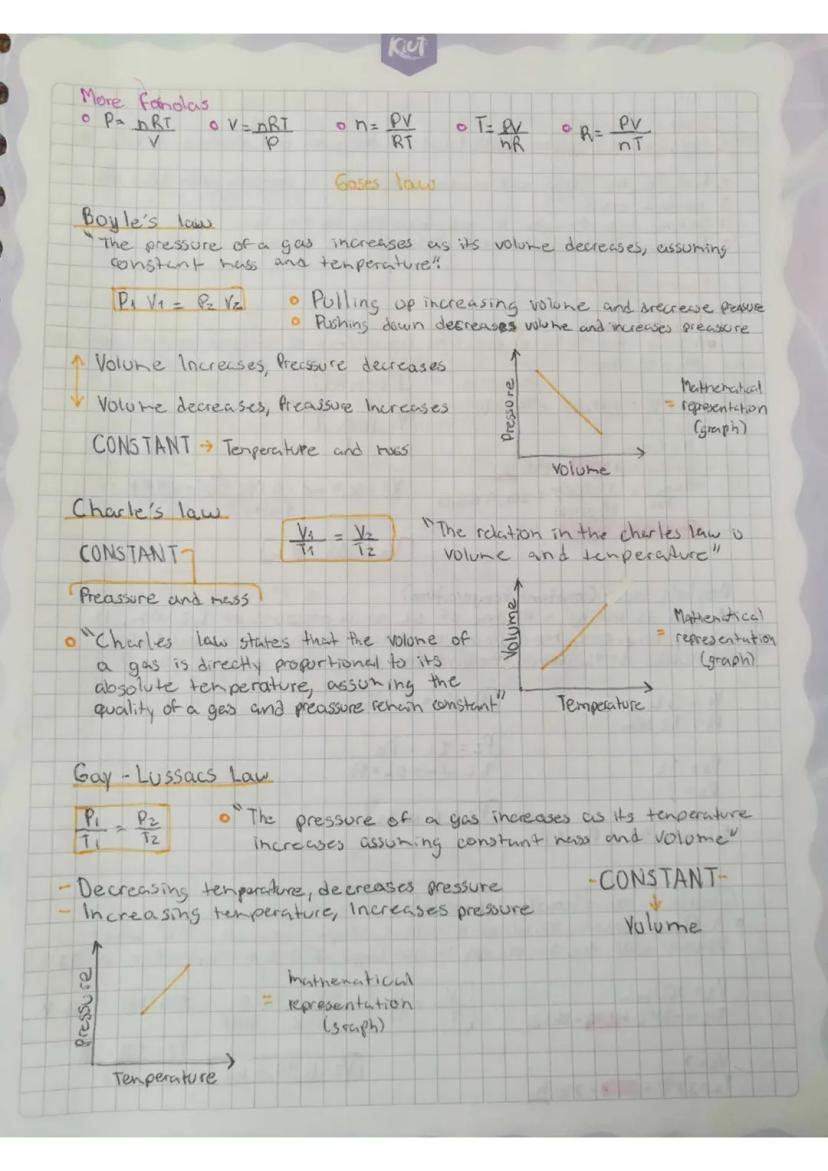 KIUT
More fanolas
o P= nRT/V o V=nRT/P o n= PV/RT o T= PV/nR o R= PV/nT
Gases law
Boyle's law
"The pressure of a gas increases as its volume decreases, assuming
constant mass and temperature".
P1 V1 = P2 V2
o Pulling up increasing volume and srecrewe peasure
o Pushing down decreases volume and increases preassure
Volume Increases, Preassure decreases
Volume decreases, Preassure Increases
CONSTANT → Temperature and mass
Pressore
Volume
Mathematical
= representation
(graph)
Charle's law
CONSTANT
Preassure and mass
V1/T1 = V2/T2
"The relation in the charles law is
volume and temperature"
o "Charles law states that the volume of
a gas is directly proportional to its
absolute temperature, assuming the
quality of a gas and preassure remain constant"
Volume
Temperature
Mathematical
= representation
(graph)
Gay-Lussacs Law
P1/T1 = P2/T2
o "The pressure of a gas increases as its temperature
increases assuming constant mass and volume"
- Decreasing temperature, decreases pressure
- Increasing temperature, Increases pressure
-CONSTANT-
↓
Volume
Pressure
Temperature
mathematical
= representation
(graph)